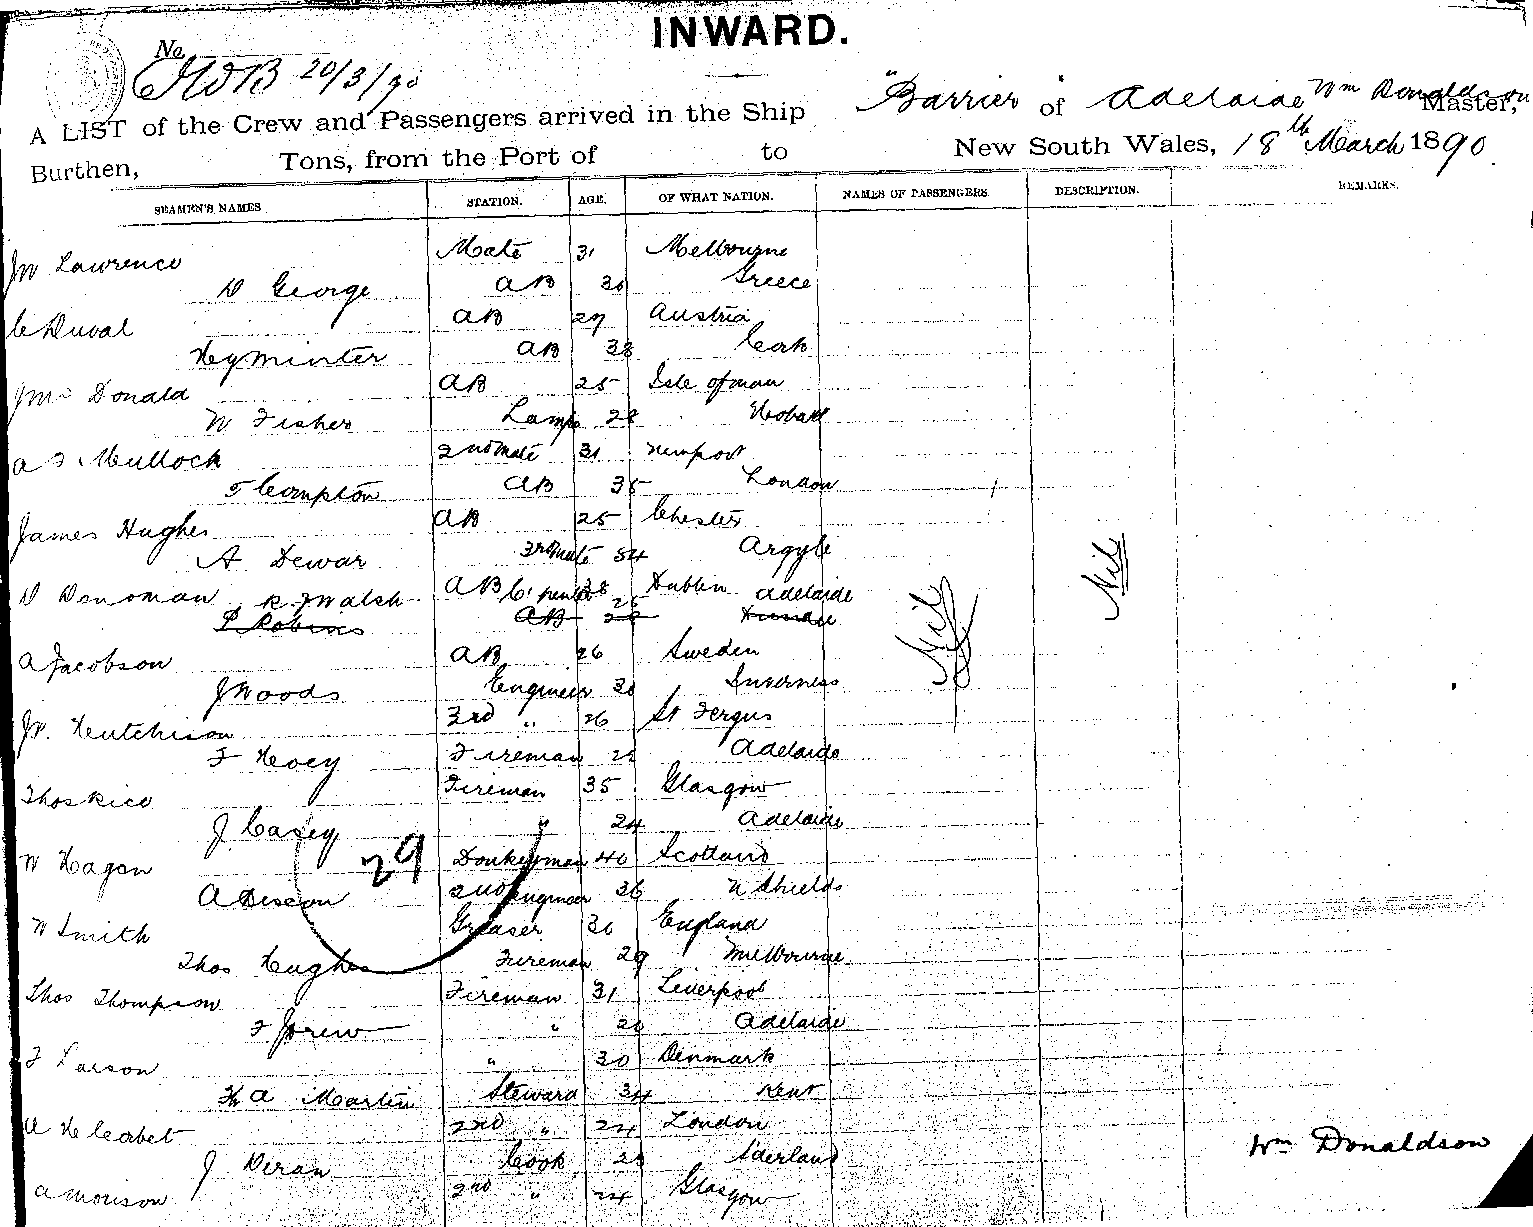 INWARD.
No
20/3/90
A LIST of the Crew and Passengers arrived in the Ship "Barrier" of Adelaide Wm Donaldson Master,
Burthen, Tons, from the Port of to New South Wales, 18th March 1890.
SEAMEN'S NAMES STATION. AGE. OF WHAT NATION. NAMES OF PASSENGERS. DESCRIPTION. REMARKS.
Lawrence Mate 31 Melbourne
D George AB 30 Greece
C Duval AB 27 Austria
Hy Minter AB 38 Cork
J Mc Donald AB 25 Isle of man
W Fisher Lamps 28 Hobart
A J Mullock 2nd Mate 31 Newport
T Compton AB 35 London
James Hughes AB 25 Chester
A Dewar 3rd Mate 54 Argyle
D Denoman AB 38 Dublin
R J Walsh Carpenter 26 Adelaide
P Robins AB 28 Dundee
A Jacobson AB 26 Sweden
J Woods Engineer 30 Inverness
JW. Hutchison 3rd " 26 St Fergus
F Hoey Fireman 22 Adelaide
Thos Rice Fireman 35 Glasgow
J Casey " 24 Adelaide
W Hagan Donkeyman 40 Scotland
A Deson 2nd Engineer 36 N Shields
W Smith Greaser 30 England
Thos Hughes Fireman 29 Melbourne
Thos Thompson Fireman 31 Liverpool
F Drew " 20 Adelaide
F Larson " 30 Denmark
A Martin Steward 34 Kent
2nd " 24 London
J Deran Cook 28
A Morison 2nd " 24 Glasgow
29
Nil
Nil
Wm Donaldson